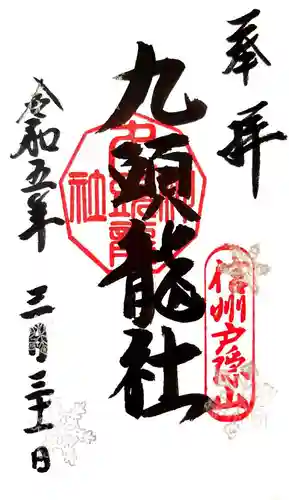 奉拝
信州戸隠山
九頭龍社
九頭龍神社
令和五年三月三十一日